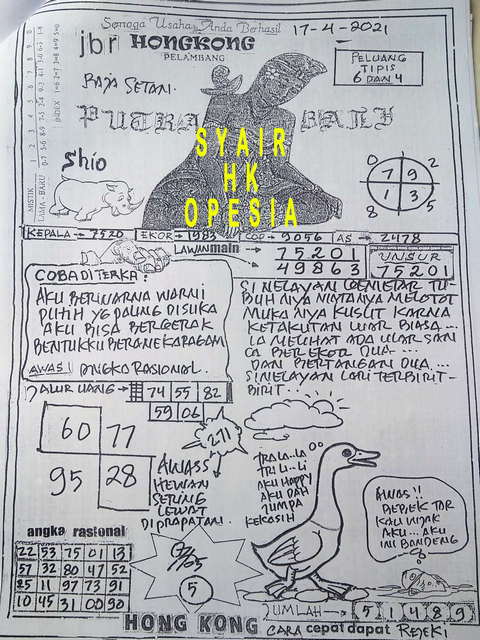 Semoga Usaha Anda Berhasil
17-4-2021
jbr HONGKONG
PELAMBANG
PELUANG
TIPIS
6 DAN 4
RAJA SETAN
PUTRA BALI
SYAIR
HK
OPESIA
Shio
0 2
7 9
1 3
8 5
MISTIK
LAMA - BARU
INDEX
KEPALA → 7520
EKOR → 1983
COP → 9056
AS → 2478
LAWAN main
7 5 2 0 1
4 9 8 6 3
UNSUR
75201
COBA DITERKA :
AKU BERWARNA WARNI
PUTIH YG PALING DISUKA
AKU BISA BERGERAK
BENTUKKU BERANEKARAGAM
AWAS! ANGKA RASIONAL.
SI NELAYAN GEMETAR TU-
BUH NYA MATANYA MELOTOT
MUKA NYA KUSUT KARNA
KETAKUTAN LUAR BIASA...
IA MELIHAT ADA ULAR SAN
CA BEREKOR DUA...
DAN BERTANGAN DUA...
SI NELAYAN LARI TERBIRIT-
BIRIT..
JALUR UANG →
74 55 82
59 06
60 77
95 28
271
AWASS
HEWAN
SERING
LEWAT
DIPRAPATAN.
TRALALA
TRI LI-LI
AKU HAPPY
AKU DAH
JUMPA
KEKASIH
AWAS !!
BEBEK TAR
KAU INJAK
AKU... AKU
INI BANDENG
angka rasional
22 53 75 01 13
57 32 80 47 52
25 11 97 73 91
10 45 31 00 90
5
JUMLAH →
5 1 4 8 9
HONG KONG
CARA cepat dapat REJEKI